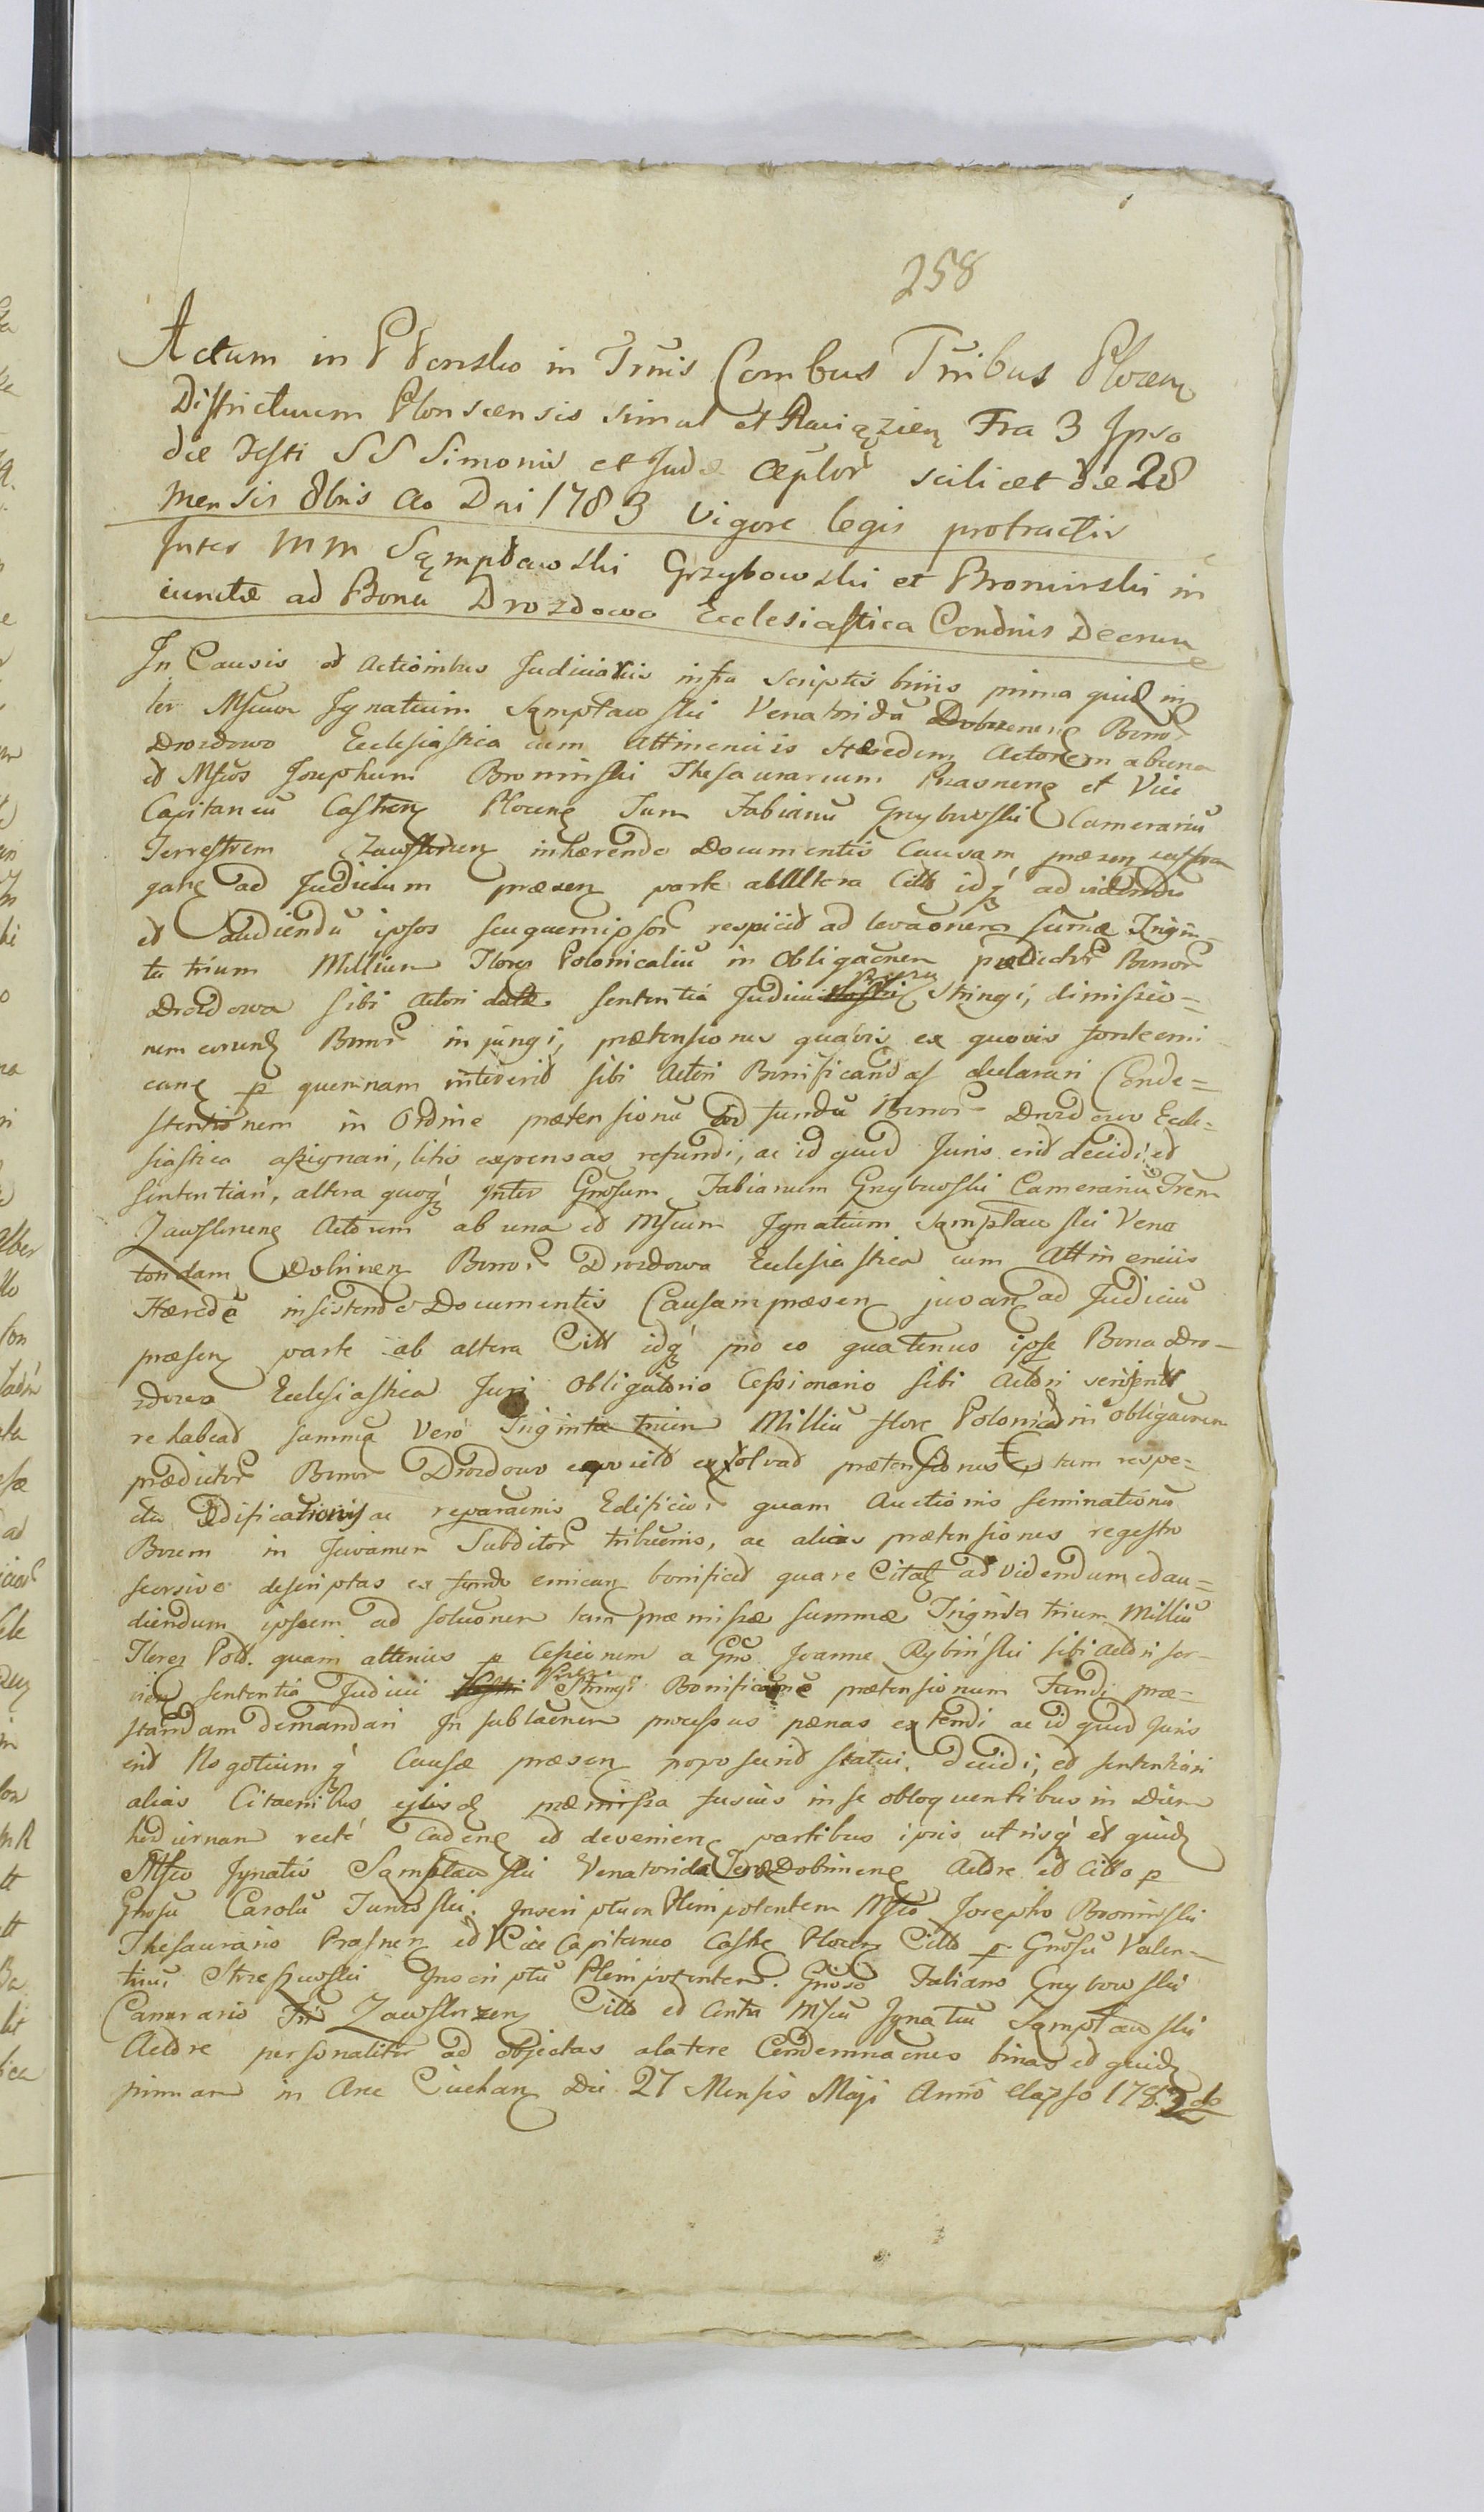 258
Actum in Płonsko in Trnis Combus Tribus Plocen
Districtuum Plonscensis simul et Raciązien Fra 3 Ipso
die Festi SS Simonis et Juda Aplor scilicet die 28
Mensis 8bris Ao Dni 1783 vigore legis protractis
Inter MM Sąmpławski Grzybowski et Bromirski in
cunctæ ad Bona Drozdowo Ecclesiastica Condnis Decrum
In Causis et actionibus Judiciariis infra scriptis binis prima quid in
ter Mfcum Ignatium Sąmpławski Venatoridą Dobrznens Bonor
Drozdowo Ecclesiastica cum attinenciis Hæredem Actorem ab una
et Mfcos Josephum Bromirski Thesaurarium Prasnens et Vice
Capitaneū Castren Plocens Tum Fabianū Grzybowski Camerariū
Terrestrem Zawskrzen inhærendo Documentis Causam præsen suffra
gans ad Judicium præsen parte ab altera Citts idq ad videndū
et audiendū ipsos seu quemipsor respicit ad levaonem sumæ Trigin
ta trium Millium Floren Polonicaliū in Obligaonem prædictor Bonor
Drozdowa sibi Actori sententia Judicii stringi, dimissio=
nem eorund Bonor injungi, prætensiones quavis ex quovis fonte emi
cans p quemnam intererit sibi Actori Bonificandas declarari Conde=
scentionem in Ordine prætensionū ad fundū Bonor Drozdowo Eccle=
siastica assignari, litis expensas refundi, ac id quid Juris erit decidi et
sententiari, altera quoq inter Gnosum Fabianum Grzybowski Camerariū Trem
Zawskrzens Actorem ab una et Mfcum Ignatium Sąmpławski Vena
toridam Dobrinen Bonor Drozdowa Ecclesiastica cum Attinenciis
Hæredē insistendo Documentis Causam præsen juvans ad Judiciū
præsen parte ab altera Citt idq pro eo quatenus ipse Bona Dro-
zdowo Ecclesiastica Juri Obligatorio Cessionario sibi Actori servient
rehabeat summą vero Triginta trium Milliū flore Polonical in obligaonem
prædictor Bonor Drozdowo exolvat prætensiones tam respe=
ctu Ædificationis ac reparaonis Edificior quam Auctionis seminationū
Boum in Juvamen Subditor tribuonis, ac alias prætensiones regestro
seorsive descriptas ex fundo emican bonificet quare Citat ad videndum et au=
diendum ipsum ad soluonem tam præmissæ summæ Triginta trium Milliū
Floren Pol. quam attenus p Cessionem a Gno Joanne Rybiński sibi Actori ser-
vien sententia Judicii Stringi Bonificaone prætensionum Fundi præ=
standam demandari In sublaonem processus pænas extendi ac id quid Juris
erit Negotiumq Causæ præsen poposcerit statui, decidi, et sententiari
alias Citaonibus ejusd præmissa fusius in se obloquentibus in Diem
hodiernam recte Caden et devenien partibus ipsis utrisq et quid
Mfco Ignatio Sąmpławski Venatorida Terræ Dobrinens Actore et Citto p
Gnosu Carolū Junoski Inscriptum Plenipotentem Mfco Josepho Bromirski
Thesaurario Prasnen et Vice Capitaneo Castre Plocen Citto p Gnosū Valen-
tinū Strzeszewski Inscriptū Plenipotentem. Gnoso Fabiano Grzybowski
Camerario Tri Zawskrzen Citto et Contra Mfcū Ignatiū Sąmpławski
Actore personaliter ad objectas a latere Condemnaones binas et quid
primam in Arce Ciechan Die 27 Mensis Maji Anno elapso 1782do